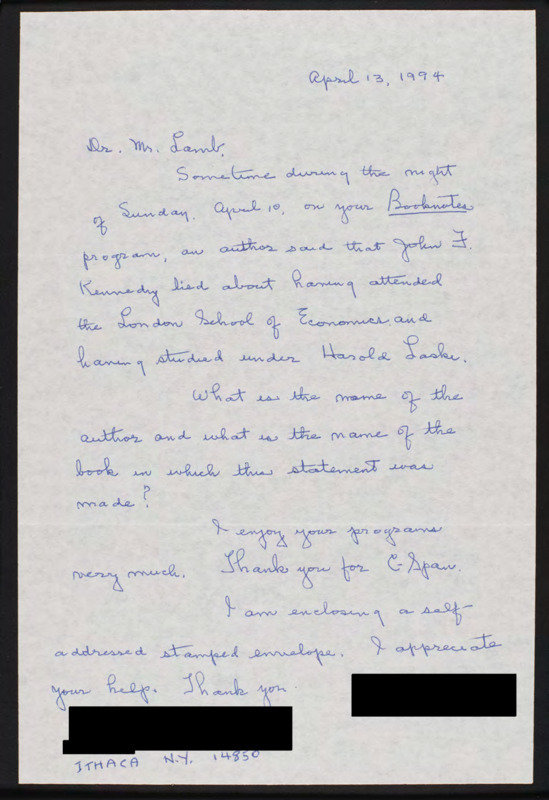 April 13, 1994
Dr. Mr. Lamb,
Sometime during the night
of Sunday, April 10, on your Booknotes
program, an author said that John F.
Kennedy lied about having attended
the London School of Economics and
having studied under Harold Laski.
What is the name of the
author and what is the name of the
book in which this statement was
made?
I enjoy your programs
very much. Thank you for C-Span.
I am enclosing a self-
addressed stamped envelope. I appreciate
your help. Thank you.
ITHACA N.Y. 14850